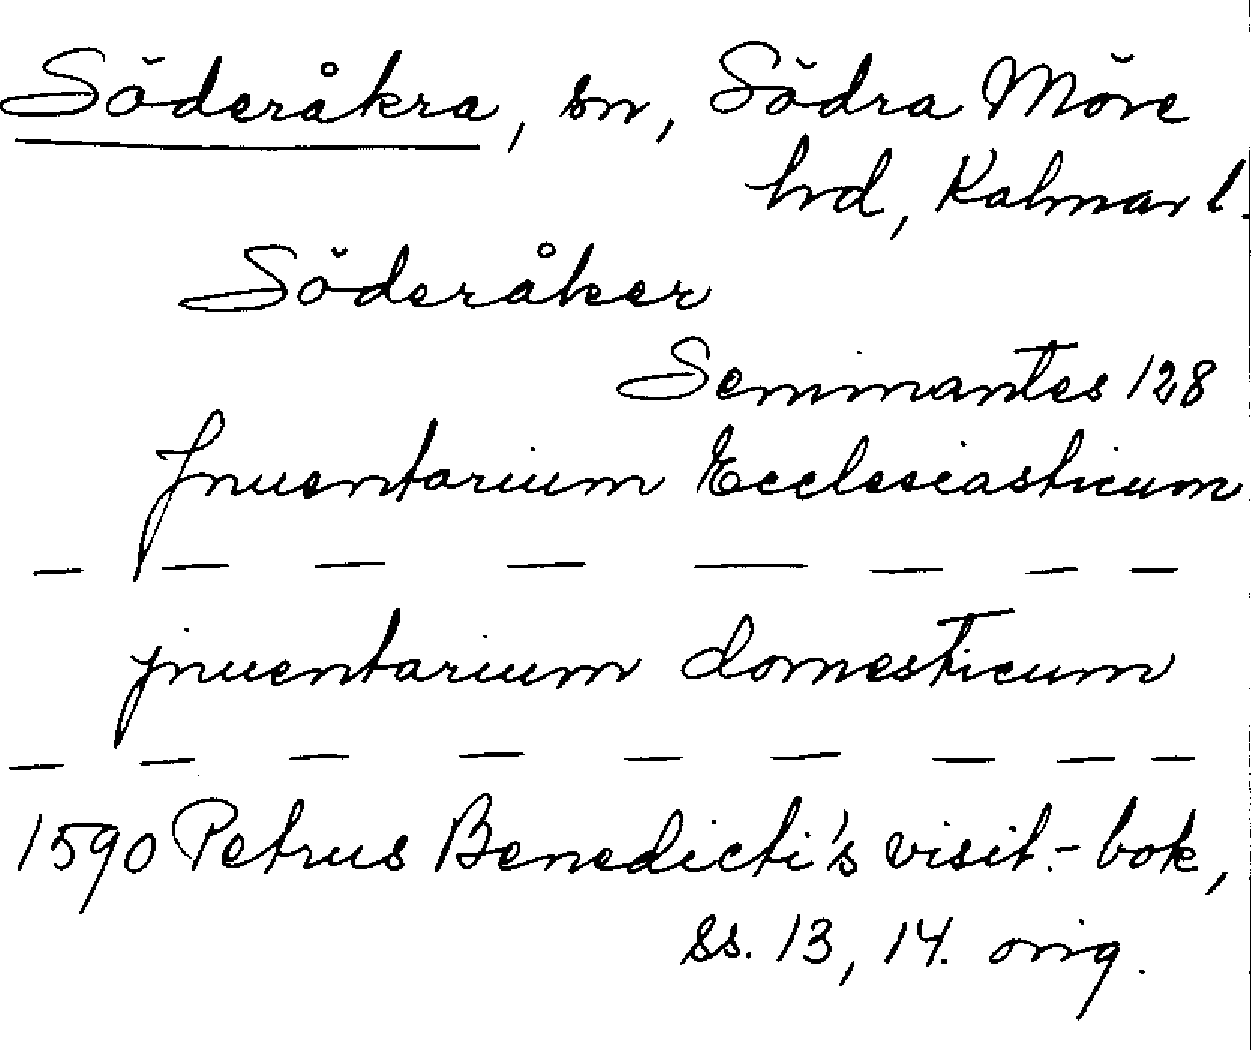 Söderåkra, sn, Södra Möre
hd, Kalmar l.
Söderåker
Seminantes 128
Jnuentarium Ecclesiasticum
— — — — — — — —
jnuentarium domesticum
— — — — — — — —
1590 Petrus Benedicti's visit.-bok,
ss. 13, 14. orig.